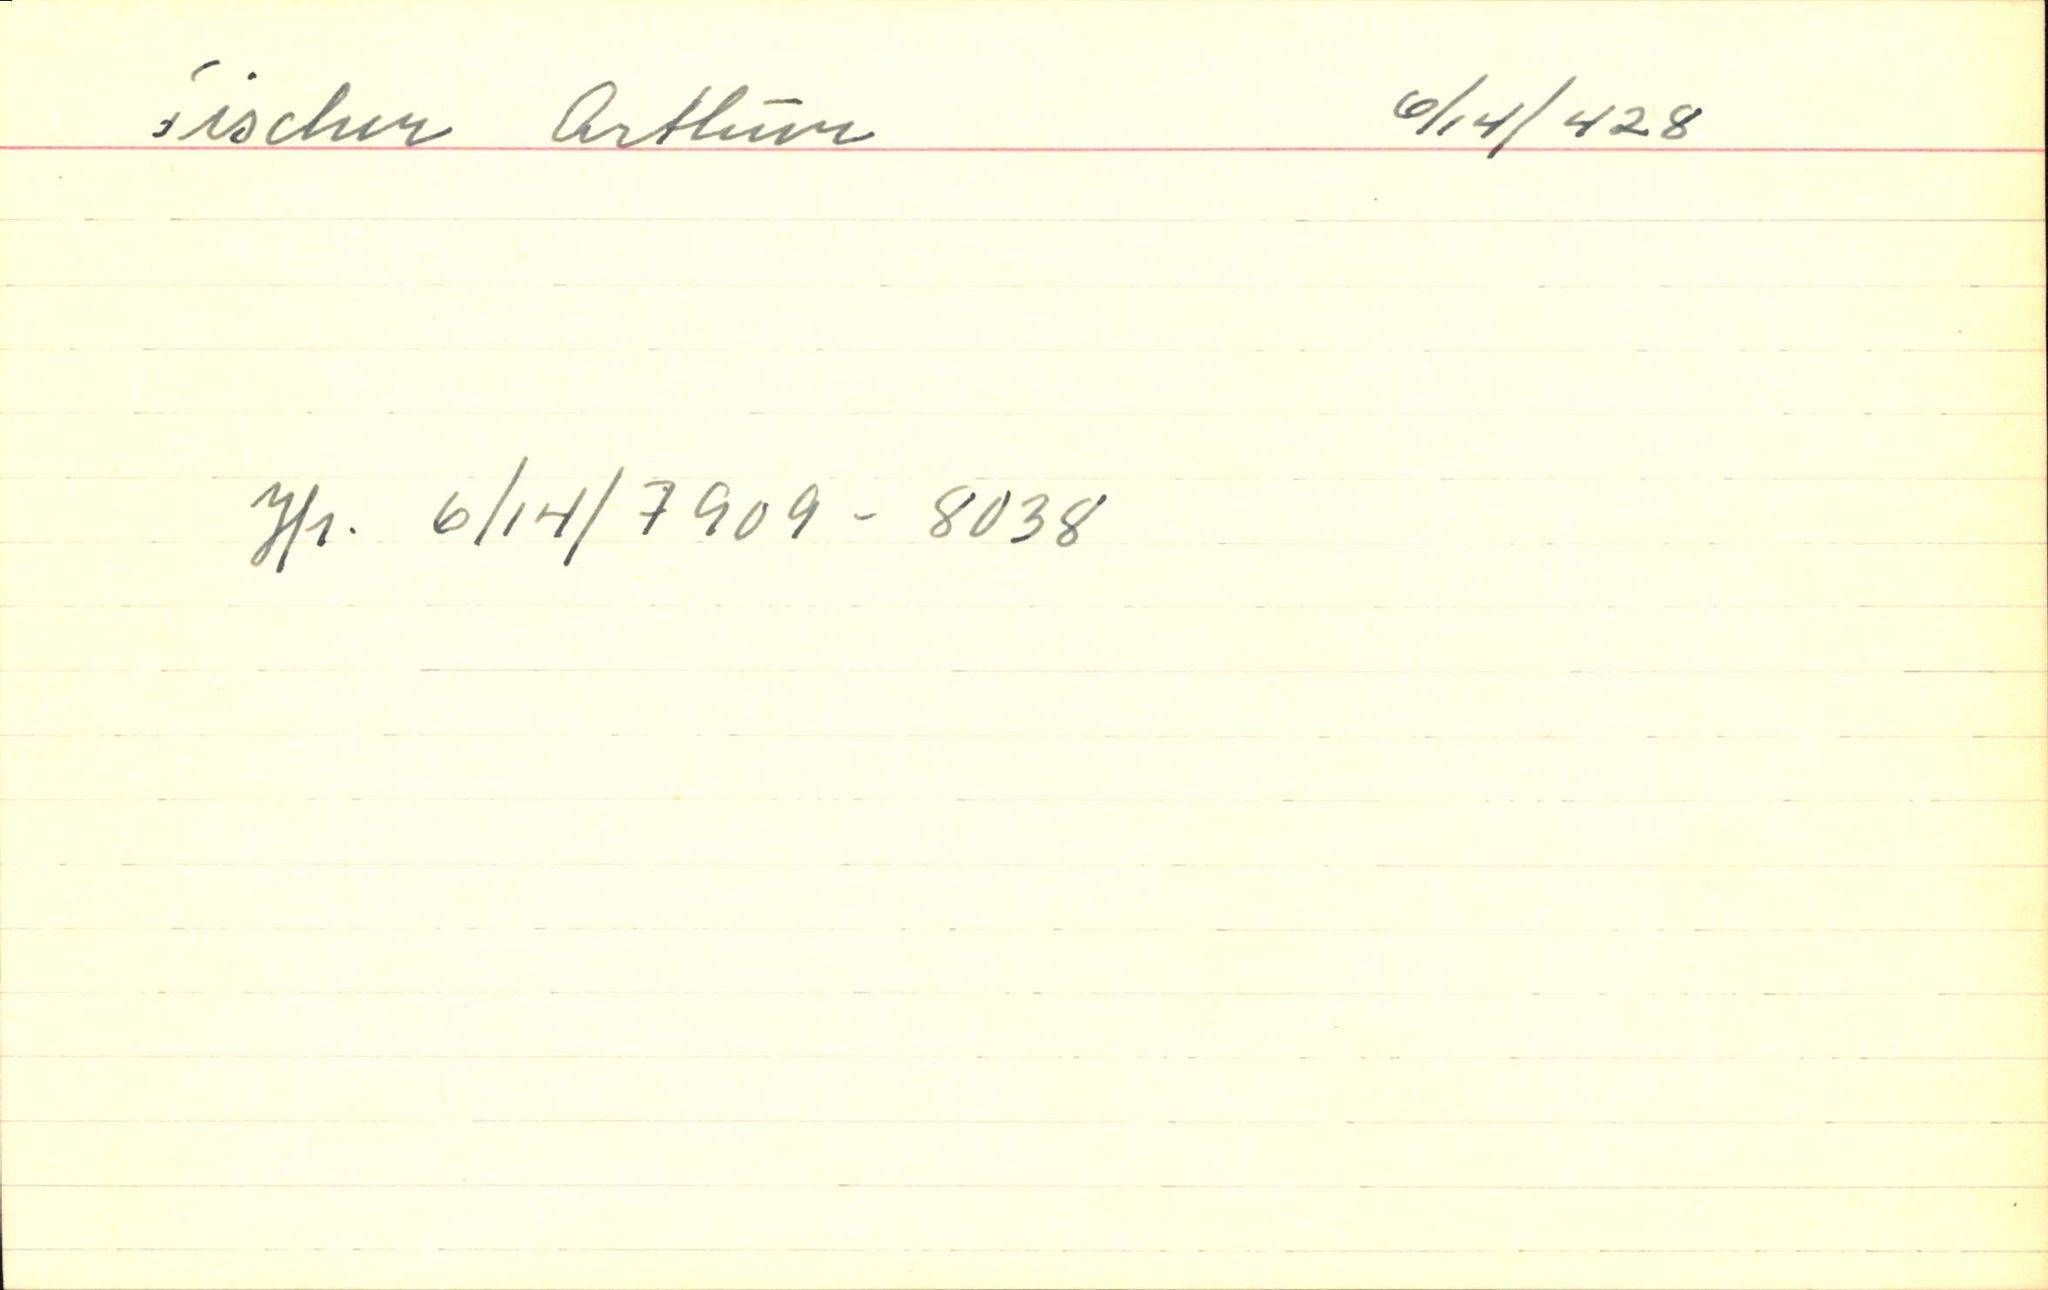 Fischer Arthur 6/14/428
6/14/7909 - 8038